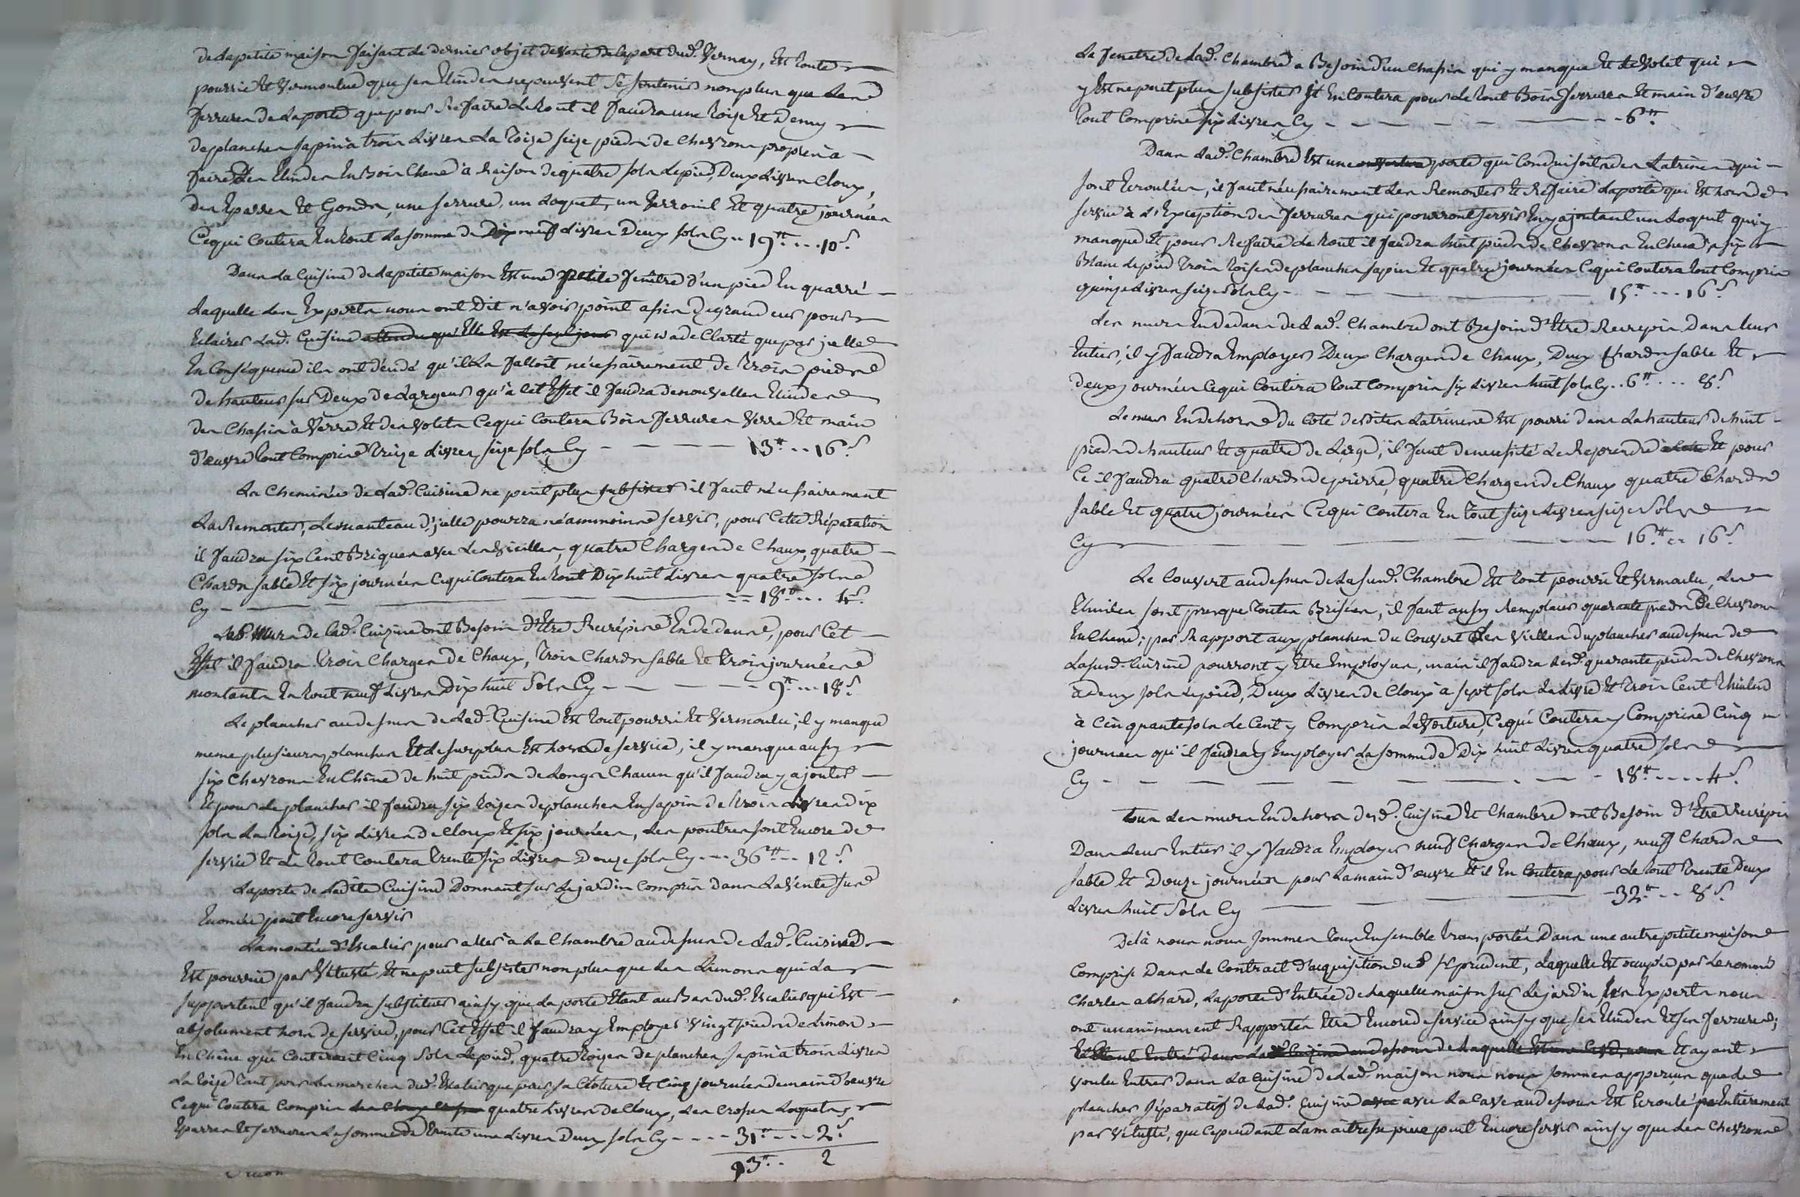 de la petite maison faisant le dernier objet de vente de la part dud. Vernay, Est toute
pourrie Et vermoulue que ses Elindes ne peuvent se soutenir non plus que les
ferrures de la porte que pour Refaire le tout il faudra une toize Et demy
de planches sapin à trois Livres La toize seize pieds de chevrons propres à
faire des Elindes En Bois Chene à Raison de quatre sols le pied, Deux Livres Cloux,
des Eparres Et Gonds, une serrure, un Loquet, un Verroüil Et quatre journées
Ce qui Coutera En tout La somme de Dix neuf Livres Deux sols Cy .. 19tt ... 10s
Dans La Cuisine de la petite maison Est une petite fenêtre d'un pied En quarré
Laquelle Les Experts nous ont Dit n'avoir point assez De grandeur pour
Eclairer Lad. Cuisine attendu qu'Elle Est Le seul jour qui n'a de Clarté que par jcelle
En Conséquence ils ont décidé qu'il La falloit nécessairement de trois pieds
de hauteur sur Deux de Largeur qu'à Cet Effet il faudra de nouvelles Elindes
des Chassis à Verre Et des Volets Ce qui Coutera Bois ferrures Verre Et main
d'œuvre tout Compris Treize Livres seize sols Cy - - - 13tt .. 16s
La Cheminée de Lad. Cuisine ne peut plus subsister il faut nécessairement
La Remonter, Le manteau d'jcelle pourra néammoins servir, pour Cette Réparation
il faudra six Cent Briques avec Les Vieilles, quatre Charges de Chaux, quatre
Chards sable Et six journées Ce qui Coutera En tout Dix huit Livres quatre sols
Cy - - - 18tt ... 4s
Les Murs de Lad. Cuisine ont Besoin d'Etre Recrépis En dedans, pour Cet
Effet il faudra trois Charges de Chaux, trois Chards sable Et trois journées
montants En tout neuf Livres Dix huit Sols Cy - - - 9tt ... 18s
Le plancher au dessus de Lad. Cuisine Est tout pourri Et Vermoulu, il y manque
meme plusieurs planches Et Le surplus Est hors de service, il y manque aussy
six Chevrons En Chêne de huit pieds de Longs Chacun qu'il faudra y ajouter
Et pour Le plancher il faudra six toizes de planches En sapin de trois Livres dix
sols La toize, six Livres de Cloux Et six journées, Les poutres sont Encore de
service Et Le tout Coutera trente six Livres Douze sols Cy ... 36tt .. 12s
La porte de Ladite Cuisine Donnant sur Le jardin Compris dans La Vente sus
Enoncée peut Encore servir
La montée d'Escalier pour aller à La Chambre au dessus de Lad. Cuisine
Est pourrie par Vétusté, Et ne peut subsister non plus que Les Limons qui La
supportent qu'il faudra substituer ainsy que La porte Etant au Bas dud. Escalier qui Est
absolument hors de service, pour Cet Effet il faudra y Employer vingt pieds de Limon
En Chêne qui Couteront Cinq sols Le pied, quatre toizes de planches sapin à trois Livres
La toize tant pour Les marches dud. Escalier que pour sa Cloture Et Cinq journées de main d'œuvre
Ce qui Coutera Compris quatre Livres de Cloux, Les Crosses Loquets,
Eparres Et serrures La somme de trente une Livres Deux sols Cy - - - 31tt ... 2s
93tt .. 2
La fenetre de Lad. Chambre a Besoin d'un Chassis qui y manque Et Le Volet qui
y Est ne peut plus subsister Et En Coutera pour Le tout Bois ferrures Et main d'œuvre
tout Compris six Livres Cy - - - 6tt
Dans Lad. Chambre Est une porte qui Conduisoit à des Latrines qui
sont Ecroulées, il faut nécessairement Les Remonter Et Refaire La porte qui Est hors de
service à L'Exception des ferrures qui pourront servir En y ajoutant un Loquet qui y
manque Et pour Refaire Le tout il faudra huit pieds de Chevrons En Chene à six
Blanc Le pied trois toizes de planches sapin Et quatre journées Ce qui Coutera tout Compris
quinze Livres seize sols Cy - - - 15tt ... 16s
Les murs En dedans de Lad. Chambre ont Besoin d'Etre Recrépis, Dans Leur
Entier, il y faudra Employer Deux Charges de Chaux, Deux Chards sable Et
deux journées Ce qui Coutera tout Compris six Livres huit sols Cy .. 6tt ... 8s
Le mur En dehors du Coté desdites Latrines Est pourri dans La hauteur de huit
pieds de hauteur Et quatre de Large, il faut de nécessité Le Reprendre Et pour
Ce il faudra quatre Chards de pierre, quatre Charges de Chaux quatre Chards
sable Et quatre journées Ce qui Coutera En tout seize Livres seize Sols
Cy - - - 16tt .. 16s
Le Couvert au dessus de La susd. Chambre Est tout pourri Et Vermoulu, Les
Thuiles sont presque toutes Brisées, il faut aussy Remplacer quarante pieds De Chevrons
En Chene; par Rapport aux planches du Couvert Les Vieilles du plancher au dessus de
La susd. Cuisine pourront y Etre Employées, mais il faudra Lesd. quarante pieds de Chevrons
à deux sols Le pied, Deux Livres de Cloux à sept sols La Livre Et trois Cent Thuiles
à Cinquante sols Le Cent y Compris La Voiture, Ce qui Coutera y Compris Cinq
journées qu'il faudra y Employer La somme de Dix huit Livres quatre sols
Cy - - - 18tt .... 4s
Tous Les murs En dehors desd. Cuisine Et Chambre ont Besoin d'Etre Recrépis
Dans Leur Entier il y faudra Employer neuf Charges de Chaux, neuf Chards
sable Et Douze journées pour La main d'œuvre Et il En Coutera pour Le tout Trente Deux
Livres huit Sols Cy - - - 32tt ... 8s
Delà nous nous sommes tous Ensemble transportés Dans une autre petite maison
Comprise Dans Le Contrat d'acquisition dud. sr président, Laquelle Est occupée par Le nommé
Charles abhard, La porte d'Entrée de Laquelle maison sur Le jardin Les Experts nous
ont unanimement Rapportés Etre Encore de service ainsy que ses Elindes Et ses ferrures;
Et Etant Entrés dans La Cuisine au dessous de Laquelle Est une Cave, nous Et ayant
voulu Entrer dans La Cuisine de Lad. maison nous nous sommes apperçus que le
plancher séparatif de Lad. Cuisine avec La Cave au dessous Est Ecroulé Entierement
par Vétusté, que Cependant La maitresse piece peut Encore servir ainsy que Les Chevrons